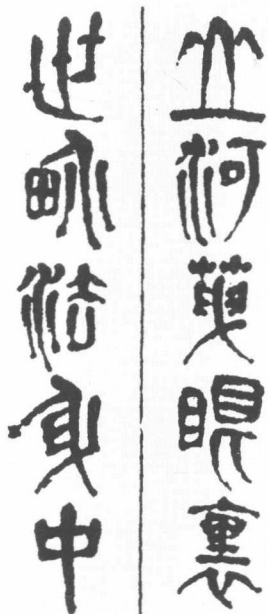 山河眼裏
世畍法身中